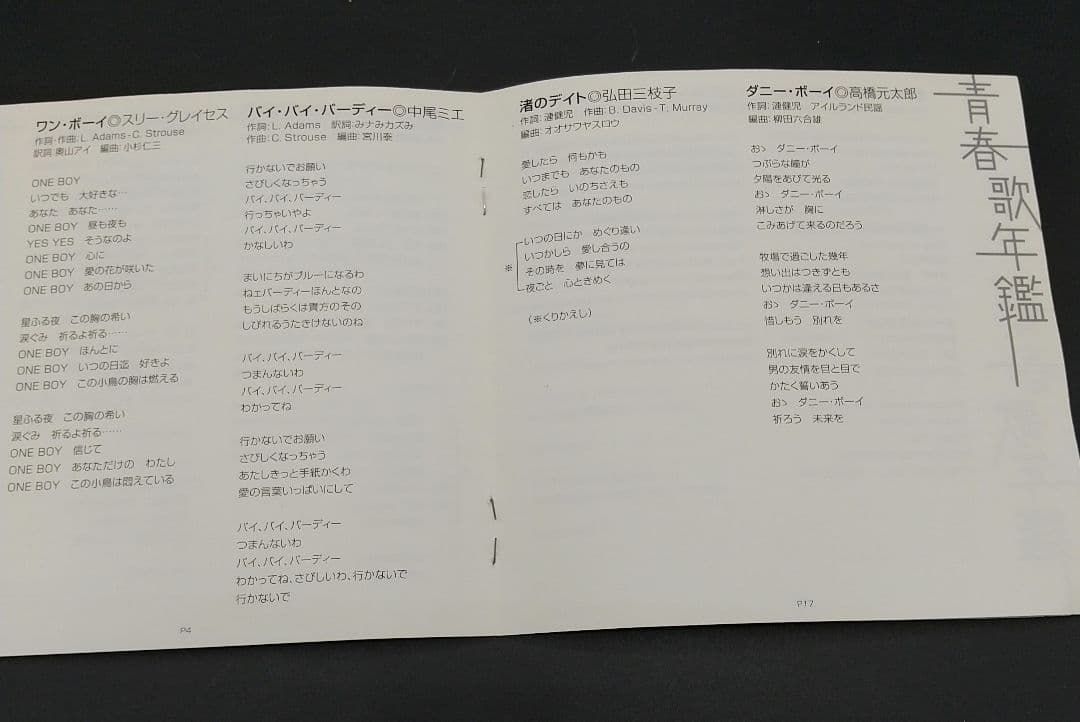 ワン・ボーイ◎スリー・グレイセス
作詞・作曲:L. Adams-C. Strouse
訳詞:奥山アイ 編曲:小杉仁三
ONE BOY
いつでも 大好きな…
あなた あなた……
ONE BOY 昼も夜も
YES YES そうなのよ
ONE BOY 心に
ONE BOY 愛の花が咲いた
ONE BOY あの日から
星ふる夜 この胸の希い
涙ぐみ 祈るよ祈る……
ONE BOY ほんとに
ONE BOY いつの日迄 好きよ
ONE BOY この小鳥の胸は燃える
星ふる夜 この胸の希い
涙ぐみ 祈るよ祈る……
ONE BOY 信じて
ONE BOY あなただけの わたし
ONE BOY この小鳥は悶えている
P4
バイ・バイ・バーディー◎中尾ミエ
作詞:L. Adams 訳詞:みナみカズみ
作曲:C. Strouse 編曲:宮川泰
行かないでお願い
さびしくなっちゃう
バイ、バイ、バーディー
行っちゃいやよ
バイ、バイ、バーディー
かなしいわ
まいにちがブルーになるわ
ねェバーディーほんとなの
もうしばらくは貴方のその
しびれるうたきけないのね
バイ、バイ、バーディー
つまんないわ
バイ、バイ、バーディー
わかってね
行かないでお願い
さびしくなっちゃう
あたしきっと手紙かくわ
愛の言葉いっぱいにして
バイ、バイ、バーディー
つまんないわ
バイ、バイ、バーディー
わかってね、さびしいわ、行かないで
行かないで
渚のデイト◎弘田三枝子
作詞:漣健児 作曲:B. Davis-T. Murray
編曲:オオサワヤスロウ
愛したら 何もかも
いつまでも あなたのもの
恋したら いのちさえも
すべては あなたのもの
いつの日にか めぐり逢い
いつかしら 愛し合うの
※ その時を 夢に見ては
夜ごと 心ときめく
(※くりかえし)
ダニー・ボーイ◎高橋元太郎
作詞:漣健児 アイルランド民謡
編曲:柳田六合雄
おゝ ダニー・ボーイ
つぶらな瞳が
夕陽をあびて光る
おゝ ダニー・ボーイ
淋しさが 胸に
こみあげて来るのだろう
牧場で過ごした幾年
想い出はつきずとも
いつかは逢える日もあるさ
おゝ ダニー・ボーイ
惜しもう 別れを
別れに涙をかくして
男の友情を目と目で
かたく誓いあう
おゝ ダニー・ボーイ
祈ろう 未来を
P17
青春歌年鑑